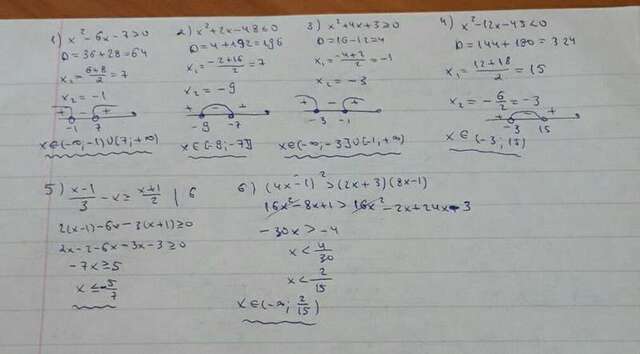 1) x² - 6x - 7 > 0
D = 36 + 28 = 64
x₁ = (6+8)/2 = 7
x₂ = -1
+ - +
-1 7
x ∈ (-∞, -1) ∪ (7; +∞)
2) x² + 2x - 48 ≤ 0
D = 4 + 192 = 196
x₁ = (-2+16)/2 = 7
x₂ = -9
+ - +
-9 -7
x ∈ [-9; -7]
3) x² + 4x + 3 ≥ 0
D = 16 - 12 = 4
x₁ = (-4+2)/2 = -1
x₂ = -3
+ - +
-3 -1
x ∈ (-∞, -3] ∪ [-1, +∞)
4) x² - 12x - 45 < 0
D = 144 + 180 = 324
x₁ = (12+18)/2 = 15
x₂ = -6/2 = -3
+ - +
-3 15
x ∈ (-3; 15)
5) (x-1)/3 - x ≥ (x+1)/2 | 6
2(x-1) - 6x - 3(x+1) ≥ 0
2x - 2 - 6x - 3x - 3 ≥ 0
-7x ≥ 5
x ≤ -5/7
6) (4x-1)² > (2x+3)(8x-1)
16x² - 8x + 1 > 16x² - 2x + 24x - 3
-30x > -4
x < 4/30
x < 2/15
x ∈ (-∞; 2/15)